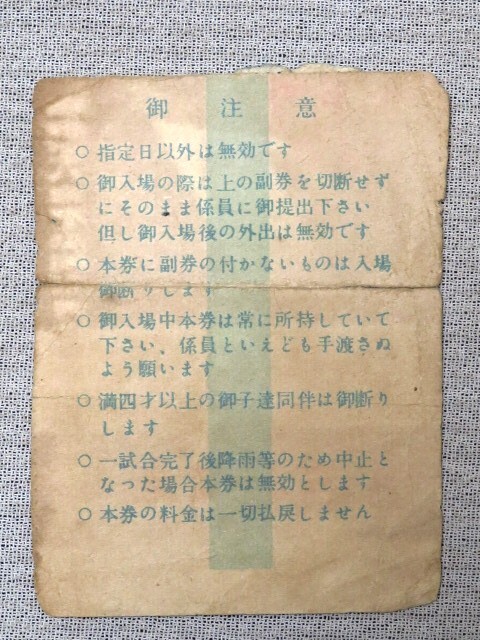 御注意
○ 指定日以外は無効です
○ 御入場の際は上の副券を切断せず
にそのまま係員に御提出下さい
但し御入場後の外出は無効です
○ 本券に副券の付かないものは入場
御断りします
○ 御入場中本券は常に所持していて
下さい、係員といえども手渡さぬ
よう願います
○ 満四才以上の御子達同伴は御断り
します
○ 一試合完了後降雨等のため中止と
なった場合本券は無効とします
○ 本券の料金は一切払戻しません